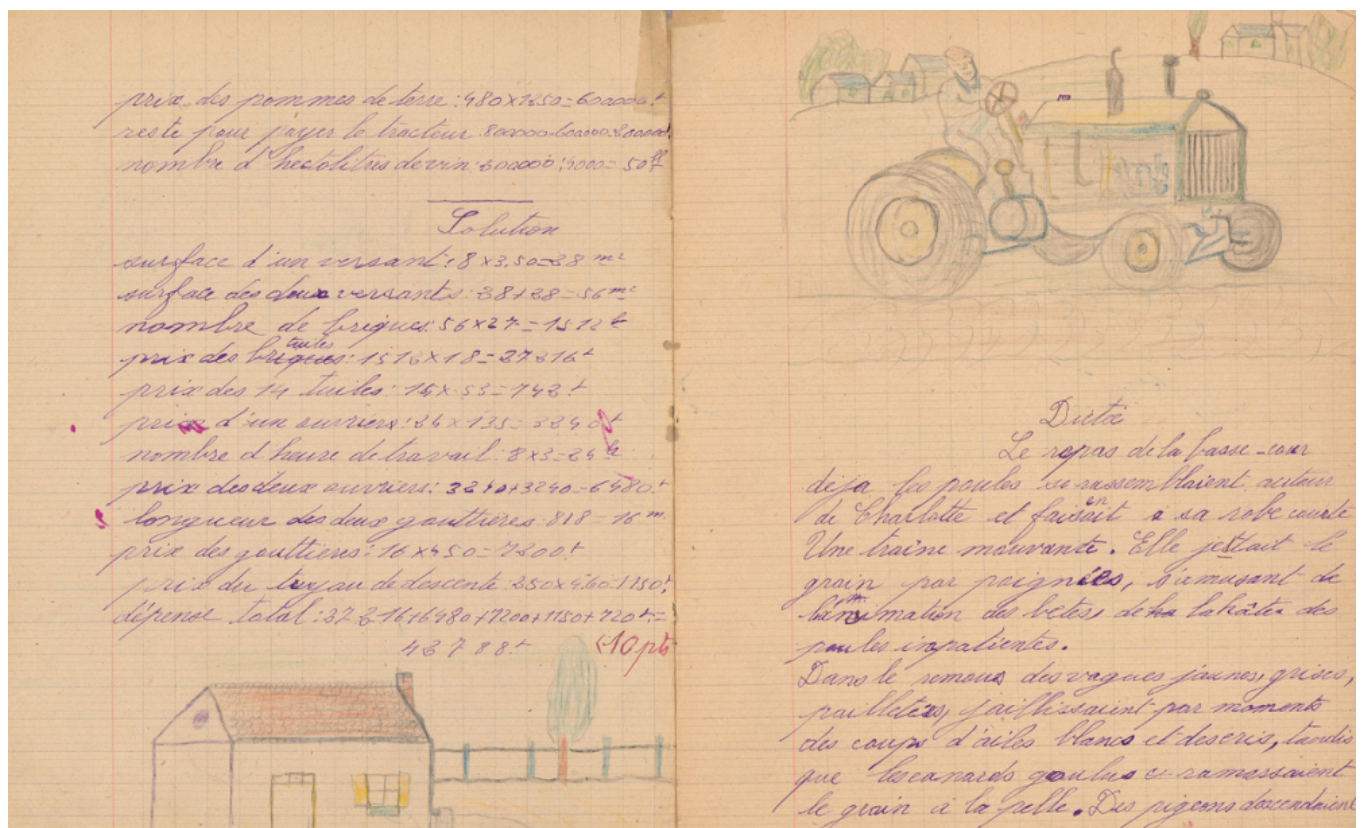 prix des pommes de terre : 480 x 1250 = 600000f
reste pour payer le tracteur : 800000-600000=200000f
nombre d'hectolitres de vin : 200000 : 4000 = 50
Solution
surface d'un versant : 8 x 3,50 = 28 m2
surface des deux versants : 28 + 28 = 56 m2
nombre de briques : 56 x 27 = 1512 t
prix des tuiles : 1512 x 18 = 27216 f
prix des 14 tuiles : 14 x 53 = 742 f
prix d'un ouvriers : 24 x 135 = 3240 f
nombre d heure de travail : 8 x 3 = 24 h
prix des deux ouvriers : 3240 + 3240 = 6480 f
longueur des deux gouttières : 8 8 = 16 m
prix des gouttières : 16 x 450 = 7200 f
prix du tuyau de descente : 250 x 4.60 = 1150 f
dépense total : 27216+6480+7200+1150+ f =
43788 f <10 pts
Dictée
Le repas de la basse-cour
déja les poules se rassemblaient autour
de Charlotte et faisaient à sa robe courte
Une traîne mouvante. Elle jettait le
grain par poignées, s'amusant de
l'animation des betes, de la hâte des
poules inpatientes.
Dans le remous des vagues jaunes, grises,
pailletées, jaillissaient par moments
des coups d'ailes blancs et des cris, tandis
que les canards goulus ramassaient
le grain à la pelle. Des pigeons descendaient